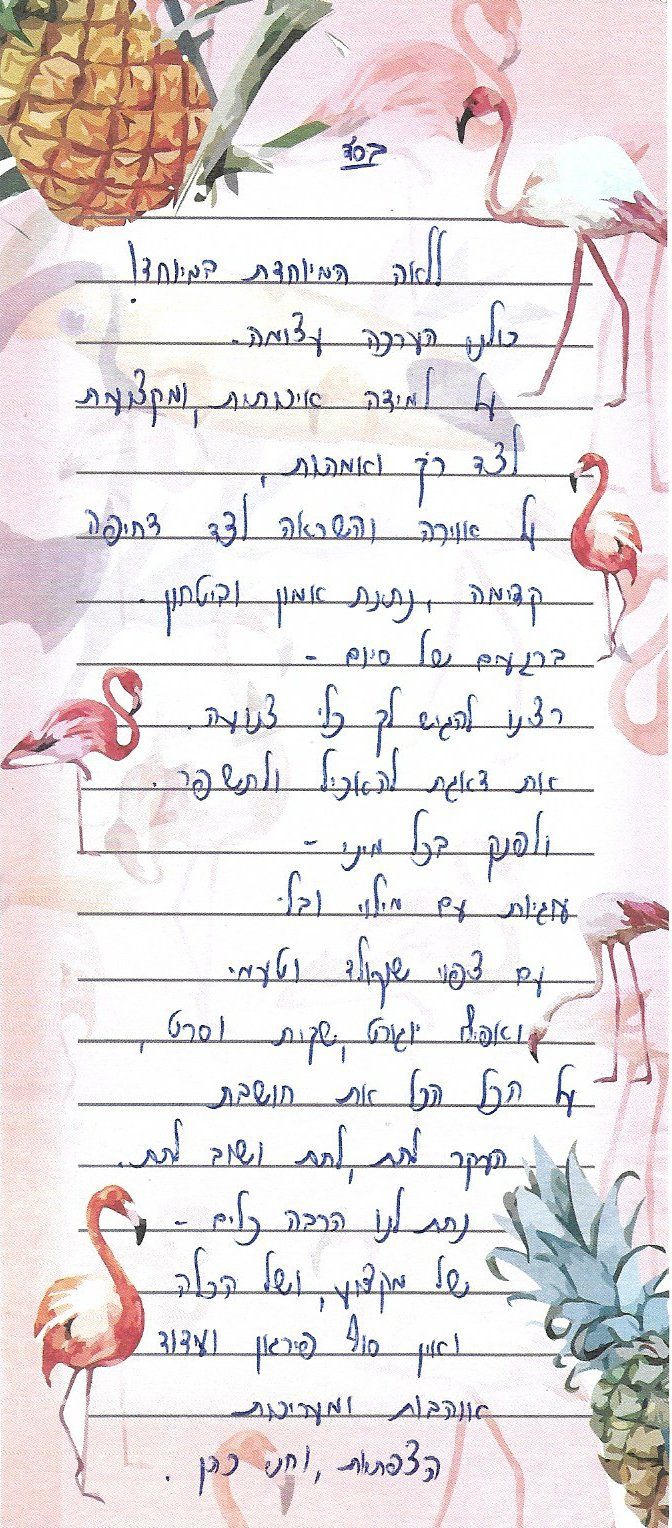 בס"ד
ללאה המיוחדת במיוחד!
כולנו הערכה עצומה-
על למידה איכותית, ומקצועית
לצד רוך ואמהות,
על אווירה והשראה לצד דחיפה
קדימה, נתינת אמון וביטחון.
ברגעים של סיום -
רצינו להגיש לך כלי צנועה.
את דאגת להאכיל ולתשפר.
ולפנק בכל מיני -
עוגיות עם מילוי ובלי
עם ציפוי שוקולד וטעמי
ואפילו יוגורט, שקית וסרט,
על הכל הכל את חושבת
העיקר לתת, לתת ושוב לתת.
נתת לנו הרבה כלים -
של מקצוע, ושל הכלה
ואין סוף פירגון ועידוד
אוהבות ומעריכות
הצפתיות, וחני כהן.